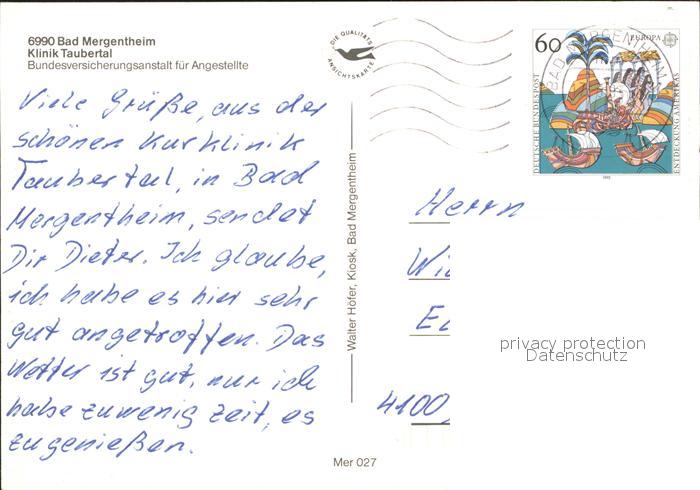 6990 Bad Mergentheim
Klinik Taubertal
Bundesversicherungsanstalt für Angestellte
Viele Grüße, aus der
schönen Kurklinik
Taubertal, in Bad
Mergentheim, sendet
Dir Dieter. Ich glaube,
ich habe es hier sehr
gut angetroffen. Das
Wetter ist gut, nur ich
habe zuwenig Zeit, es
zu genießen.
DIE QUALITÄTS
ANSICHTSKARTE
Walter Höfer, Kiosk, Bad Mergentheim
Mer 027
60
EUROPA
DEUTSCHE BUNDESPOST
ENTDECKUNG AMERIKAS
1992
BAD MERGENTHEIM
Herrn
4100
privacy protection
Datenschutz